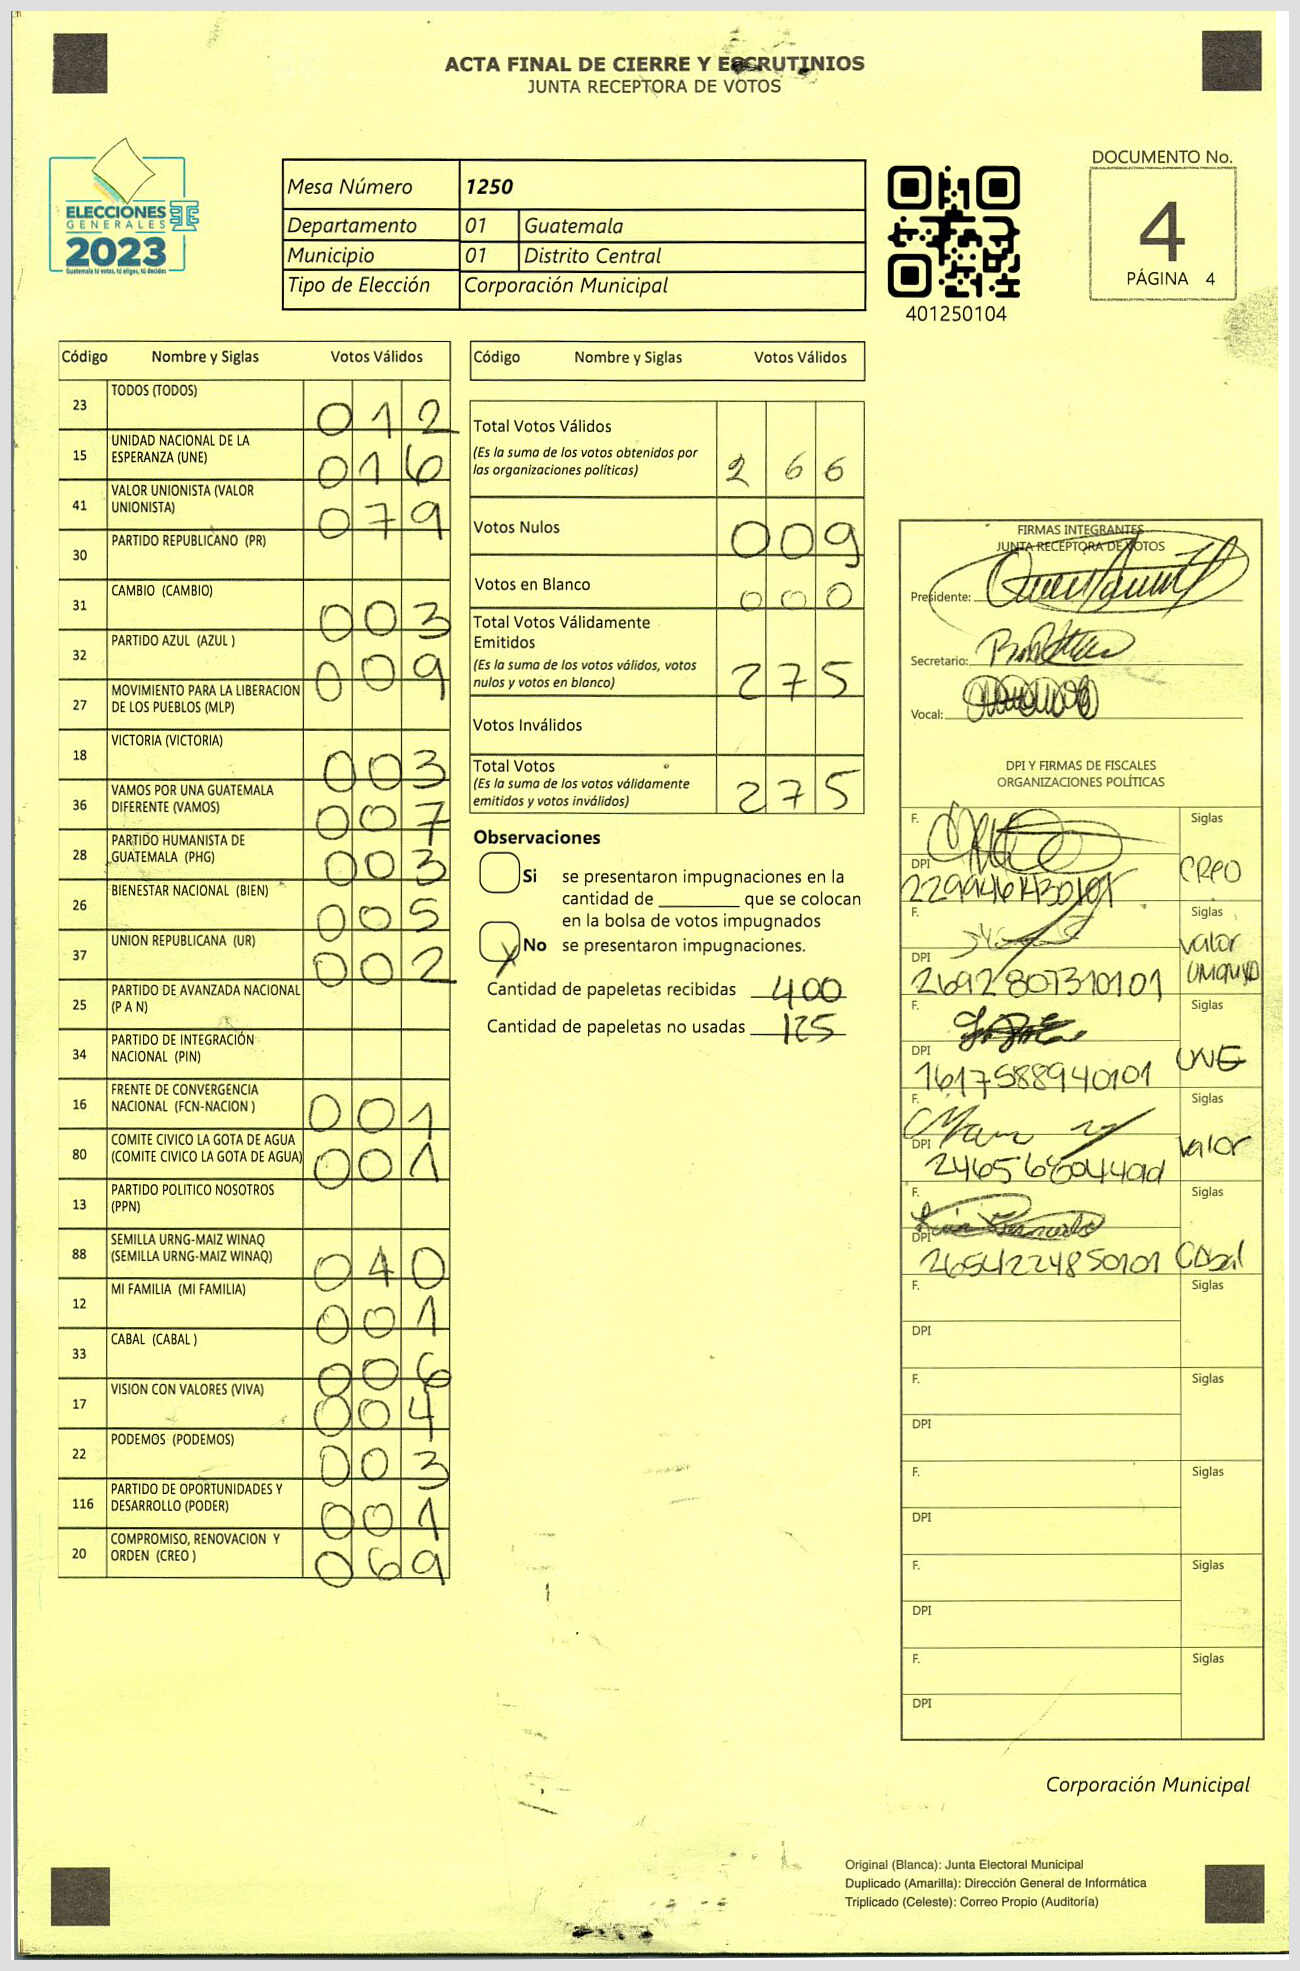 ACTA FINAL DE CIERRE Y ESCRUTINIOS
JUNTA RECEPTORA DE VOTOS
ELECCIONES
GENERALES
2023
Guatemala tú votas, tú eliges, tú decides
Mesa Número 1250
Departamento 01 Guatemala
Municipio 01 Distrito Central
Tipo de Elección Corporación Municipal
401250104
DOCUMENTO No.
4
PÁGINA 4
Código Nombre y Siglas Votos Válidos
23 TODOS (TODOS) 012
15 UNIDAD NACIONAL DE LA
ESPERANZA (UNE) 016
41 VALOR UNIONISTA (VALOR
UNIONISTA) 079
30 PARTIDO REPUBLICANO (PR)
31 CAMBIO (CAMBIO) 003
32 PARTIDO AZUL (AZUL ) 009
27 MOVIMIENTO PARA LA LIBERACION
DE LOS PUEBLOS (MLP)
18 VICTORIA (VICTORIA) 003
36 VAMOS POR UNA GUATEMALA
DIFERENTE (VAMOS) 007
28 PARTIDO HUMANISTA DE
GUATEMALA (PHG) 003
26 BIENESTAR NACIONAL (BIEN) 005
37 UNION REPUBLICANA (UR) 002
25 PARTIDO DE AVANZADA NACIONAL
(P A N)
34 PARTIDO DE INTEGRACIÓN
NACIONAL (PIN)
16 FRENTE DE CONVERGENCIA
NACIONAL (FCN-NACION ) 001
80 COMITE CIVICO LA GOTA DE AGUA
(COMITE CIVICO LA GOTA DE AGUA) 001
13 PARTIDO POLITICO NOSOTROS
(PPN)
88 SEMILLA URNG-MAIZ WINAQ
(SEMILLA URNG-MAIZ WINAQ) 040
12 MI FAMILIA (MI FAMILIA) 001
33 CABAL (CABAL ) 006
17 VISION CON VALORES (VIVA) 004
22 PODEMOS (PODEMOS) 003
116 PARTIDO DE OPORTUNIDADES Y
DESARROLLO (PODER) 001
20 COMPROMISO, RENOVACION Y
ORDEN (CREO ) 069
Código Nombre y Siglas Votos Válidos
Total Votos Válidos
(Es la suma de los votos obtenidos por
las organizaciones políticas) 266
Votos Nulos 009
Votos en Blanco 000
Total Votos Válidamente
Emitidos
(Es la suma de los votos válidos, votos
nulos y votos en blanco) 275
Votos Inválidos
Total Votos
(Es la suma de los votos válidamente
emitidos y votos inválidos) 275
Observaciones
Si se presentaron impugnaciones en la
cantidad de ________ que se colocan
en la bolsa de votos impugnados
X No se presentaron impugnaciones.
Cantidad de papeletas recibidas 400
Cantidad de papeletas no usadas 125
FIRMAS INTEGRANTES
JUNTA RECEPTORA DE VOTOS
Presidente:
Secretario:
Vocal:
DPI Y FIRMAS DE FISCALES
ORGANIZACIONES POLÍTICAS
F. Siglas
DPI CREO
F. Siglas
valor
DPI 2692807310101
F. Siglas
DPI 1617588940101 UNE
F. Siglas
DPI valor
F. Siglas
DPI 26542224850101
F. Siglas
DPI
F. Siglas
DPI
F. Siglas
DPI
F. Siglas
DPI
F. Siglas
DPI
Corporación Municipal
Original (Blanca): Junta Electoral Municipal
Duplicado (Amarilla): Dirección General de Informática
Triplicado (Celeste): Correo Propio (Auditoría)